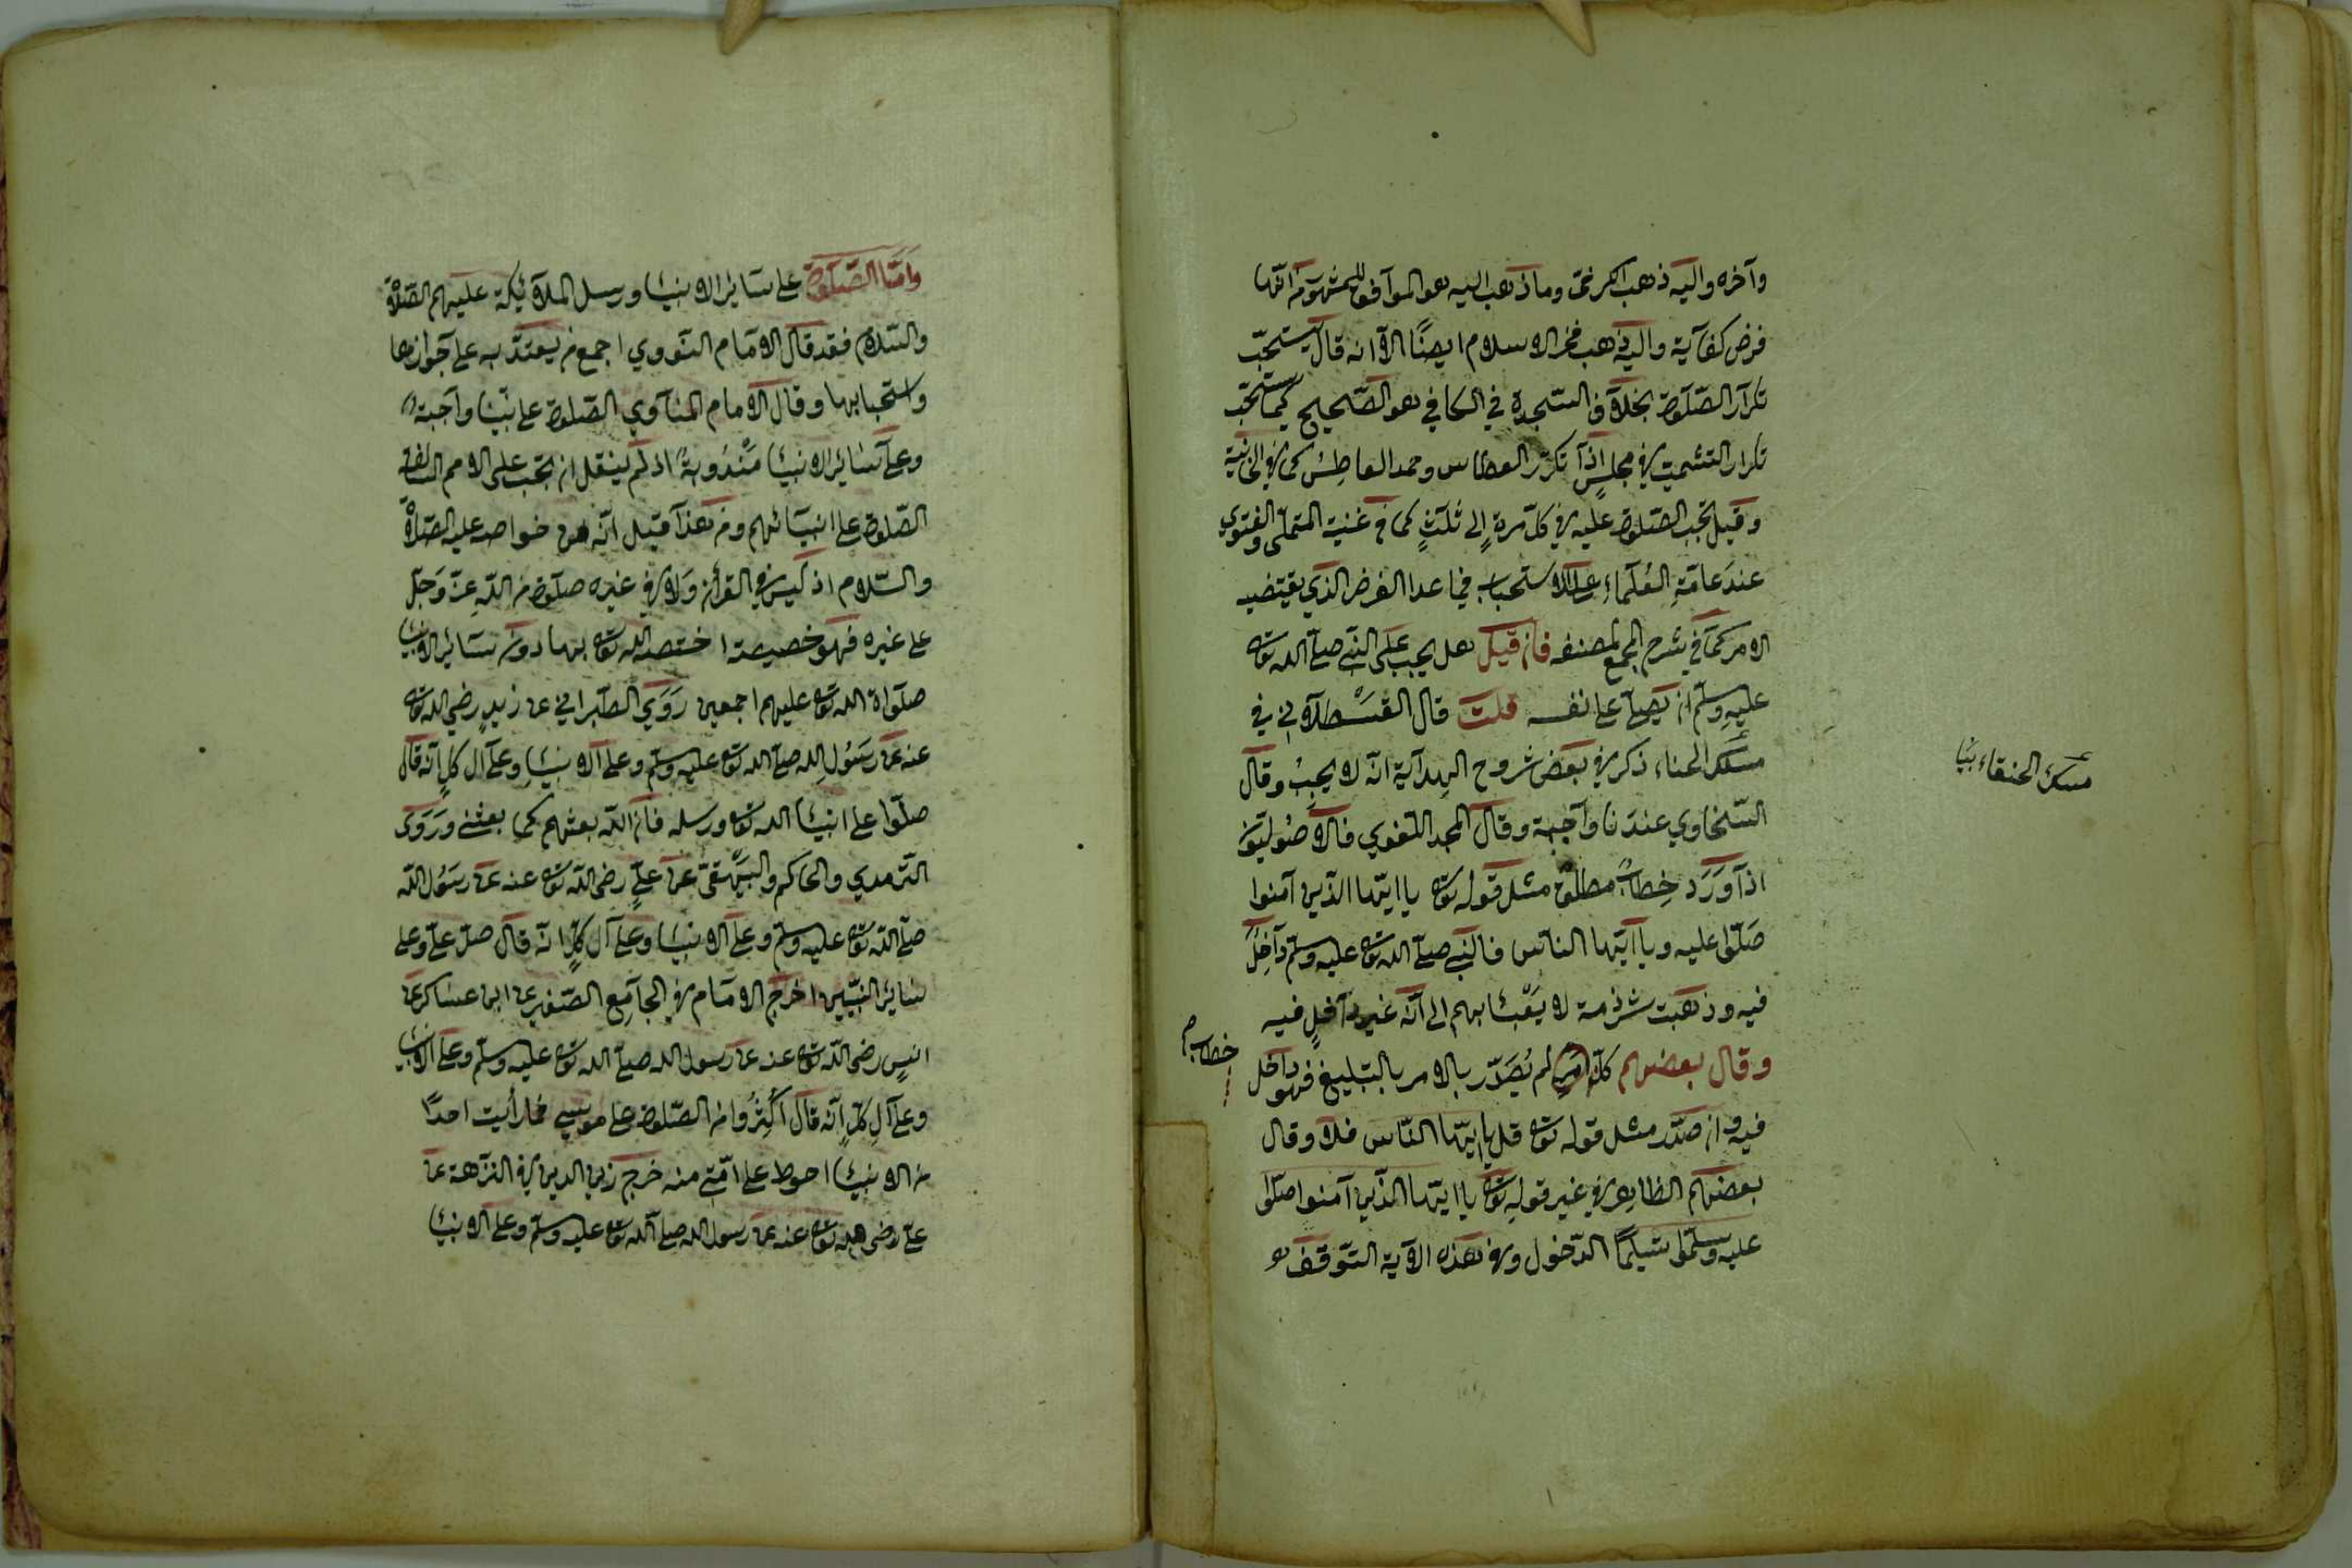 وآخره واليه ذهب الكرخى وما ذهب اليه هو الموآفق للمشهور من انّها
فرض كفآية واليه ذهب فخر الاسلام ايضًا الآ انه قال يستحبّ
تكرآر الصّلوة بخلآف السّجدة في الكافي هو الصّحيح كما يستحبّ
تكرار التشميت في مجلسٍ اذآ تكرّر العطاس وحمد العاطِسُ كما في الخانية
وقيل تجب الصّلوة عليه في كلّ مرةٍ إلى ثلثٍ كما في غنية المتملّى والفتوى
عندَ عامّةِ العُلمآءِ على الاستحباب فيما عدا الفرض الذي يقتضيه
الامر كما في شرح المجمع لمصنفه فان قيل هل يجب على النّبي صلّى الله تعالى
عليهِ وسلّم ان يصلّي على نفسه قلت قال القَسْطلآني في
مسَلك الحنفاء ذكر في بعض شروح الهدآية انّه لا يجبُ وقال
السّخاوي عندنا وآجبة وقال المجد اللّغوي فالاصُوليّون
اذآ وَرَد خِطابٌ مطلق مثل قوله تعالى يا ايّها الذّين آمنوا
صَلّوا عليه ويا ايّها الناس فالنّبي صلّى الله تعالى عليه وسلّم دآخِلٌ
فيه وذهبت شرذمة لا يَعْبَأ بهم الى انّه غير دآخلٍ فيه
وقال بعضهم كلّ امرٍ لم يُصَدّر بالامر بالتبليغ فهو داخل
خطاب
فيه وان صدّر مثل قوله تعالى قل يا ايّها النّاس فلا وقال
بعضهم الظاهر في غير قولهِ تعالى يا ايّها الذّين آمنوا صلّوا
عليه وسلّموا تسليمًا الدّخول وفي هذه الآية التّوقف
مسَلك الحنفاء
وَامّا الصّلوة على سَائر الانبياء ورسل الملآئكة عليهم الصّلاة
والسّلام فقد قال الامَام النّووي اجمع من يعتدّ به على جوازها
واستحبابها وقال الامام المنآوي الصّلوة على نبيّنا وآجبة
وعلى سَائر الانبياء مَنْدُوبةٌ اذ لم ينقل ان تجب على الامم السّالفة
الصّلوة على انبيائهم ومن هذا قيل انّه من خواصه عليه الصّلاة
والسّلام اذ ليس في القرآن وَلا في غيره صلوة من اللهِ عزّ وَجلّ
على غيره فهو خصيصة اختصه الله تعالى بها دون سَائر الانبياء
صلواة الله تعالى عليهم اجمعين رَوَي الطبراني عن زيدٍ رضي الله تعالى
عنه عن رسُول الله صلّى الله تعالى عليه وسلّم وعلى الانبياءِ وعلى آل كلٍ انّه قال
صلّوا على انبياء الله تعالى ورسله فان الله بعثهم كما بعثني وَرَوَى
التّرمدي والحاكم والبيهَقي عن عليّ رضى الله تعالى عنه عن رسُول الله
صلّى الله تعالى عليه وسلّم وعلى الانبياء وعلى آل كلٍّ انّه قال صلّ علي وعلى
سَائر النّبيّين اخرج الامَام في الجامِع الصّغير عن ابن عسَاكر عن
انسٍ رضى الله تعالى عنه عن رسول الله صلّى الله تعالى عليه وسلّم وعلى الانبياء
وعلى آل كلٍّ انّه قال اكثِرُوا من الصّلوة على موسى فما رأيت احدًا
من الانبياء احوط على امّتي منه خرج زين الدين في النزهة عن
عليّ رضى الله تعالى عنه عن رسول الله صلّى الله تعالى عليه وسلّم وعلى الانبياء